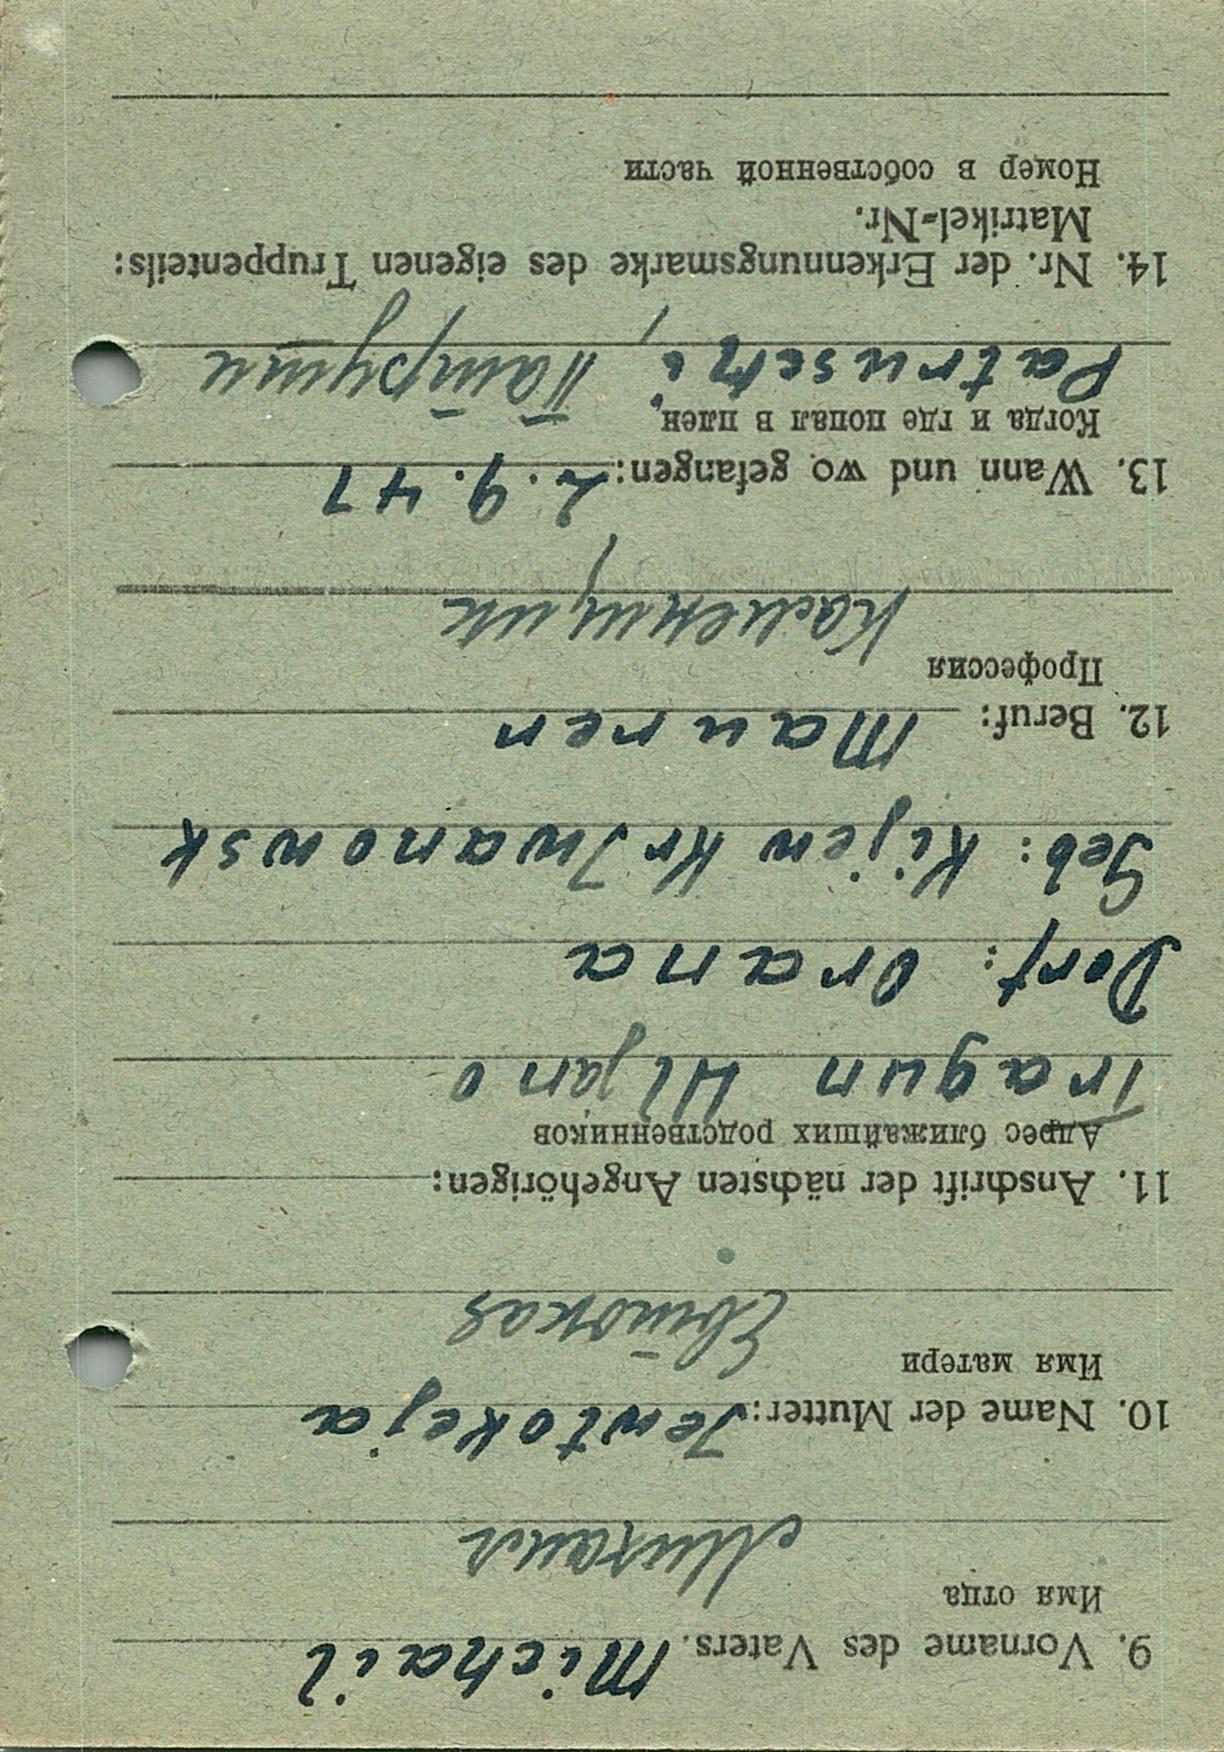 9. Vorname des Vaters. Michail
Имя отца
Михаил
10. Name der Mutter: Jewtokeja
Имя матери
Евтокая
11. Anschrift der nächsten Angehörigen:
Адрес ближайших родственников
Tragun Uljano
Dorf: Orana
Geb: Kijew Kr Jwanowsk
12. Beruf: Maurer
Профессия
Каменщик
13. Wann und wo gefangen: 2.9.41
Когда и где попал в плен,
Patruschi, Патруши
14. Nr. der Erkennungsmarke des eigenen Truppenteils:
Matrikel-Nr.
Номер в собственной части